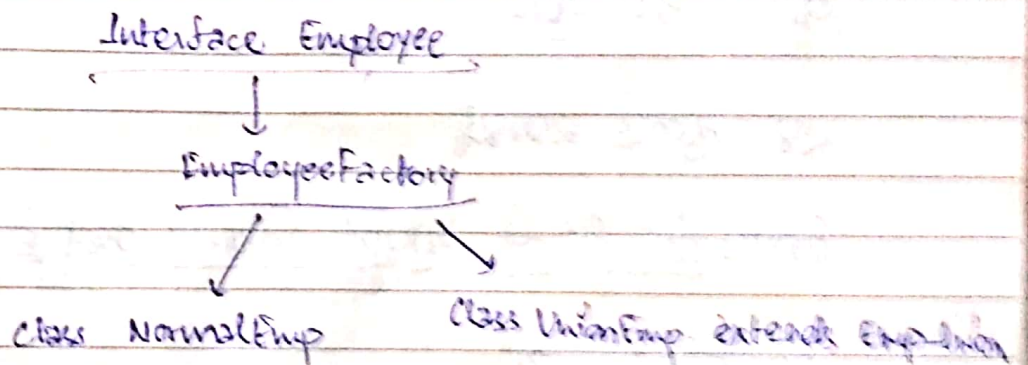 Interface Employee
EmployeeFactory
Class NormalEmp
Class UnionEmp extends